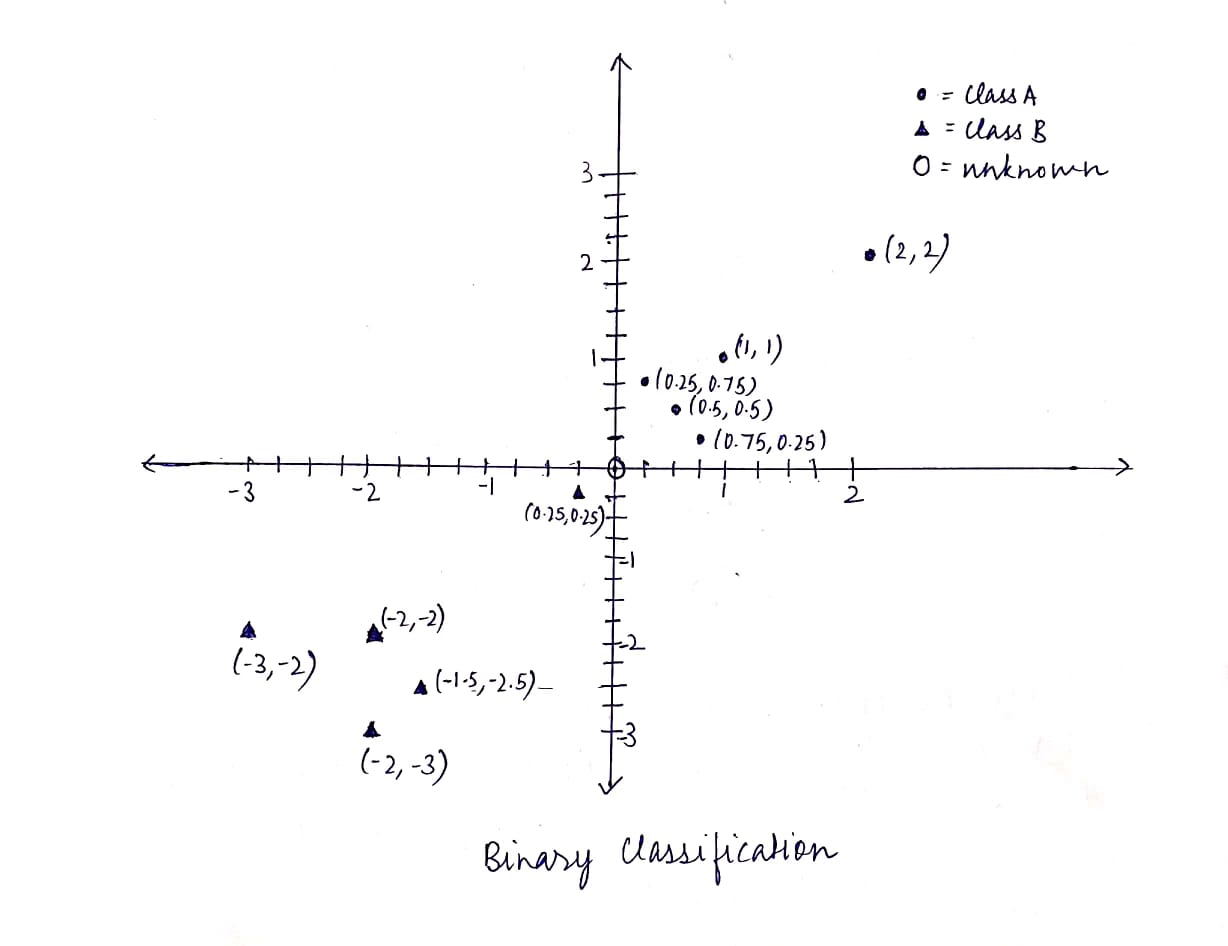 • = Class A
▲ = Class B
O = unknown
3
2
•(2, 2)
1
•(1, 1)
•(0.25, 0.75)
•(0.5, 0.5)
•(0.75, 0.25)
-3 -2 -1 1 2
(0.25, 0.25)
-1
(-2, -2)
-2
(-3, -2)
▲(-1.5, -2.5)
-3
(-2, -3)
Binary Classification